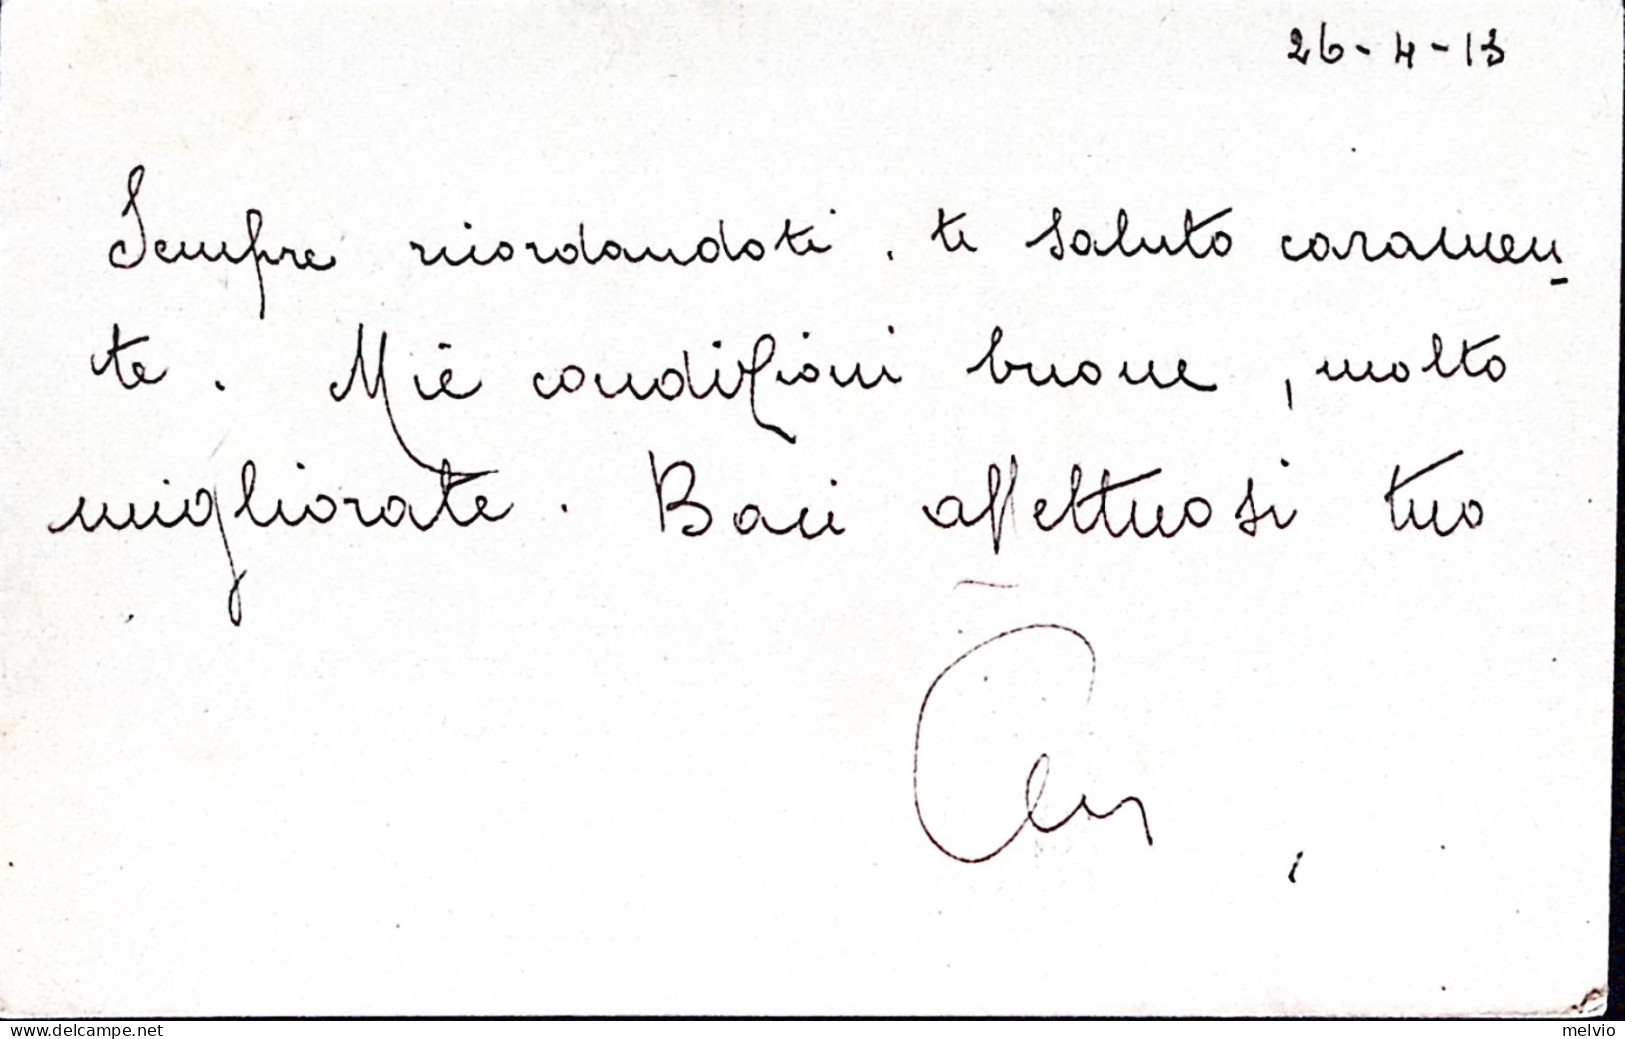 26-4-13
Sempre ricordandoti. te saluto caramen-
te. Mie condizioni buone, molto
migliorate. Baci affettuosi tuo
www.delcampe.net
melvio